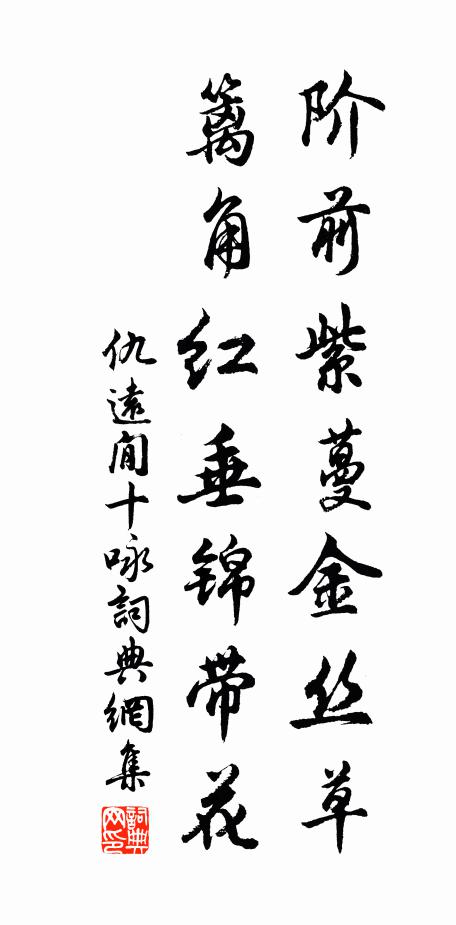 阶前紫蔓金丝草
篱角红垂锦带花
仇遠閒十咏詞典網集
詞典网印